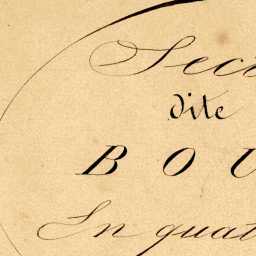 Sec
dite
BOU
In quat